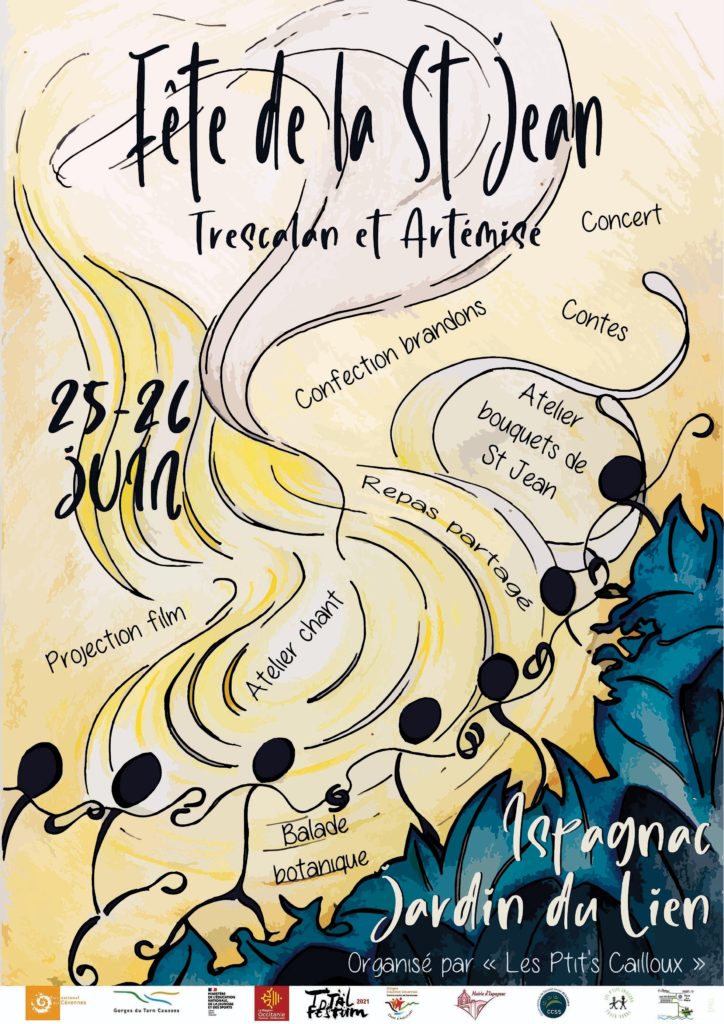 Fête de la St Jean
Trescalan et Artémise
Concert
Confection brandons
Contes
25-26
juin
Atelier
bouquets de
St Jean
Repas partagé
Projection film
Atelier chant
Balade
botanique
Ispagnac
Jardin du Lien
Organisé par « Les Ptit's Cailloux »
national
Cévennes
Gorges du Tarn Causses
MINISTÈRE
DE L'ÉDUCATION
NATIONALE,
DE LA JEUNESSE
ET DES SPORTS
Occitanie
Total
Festum
2021
Mairie d'Ispagnac
CCSS